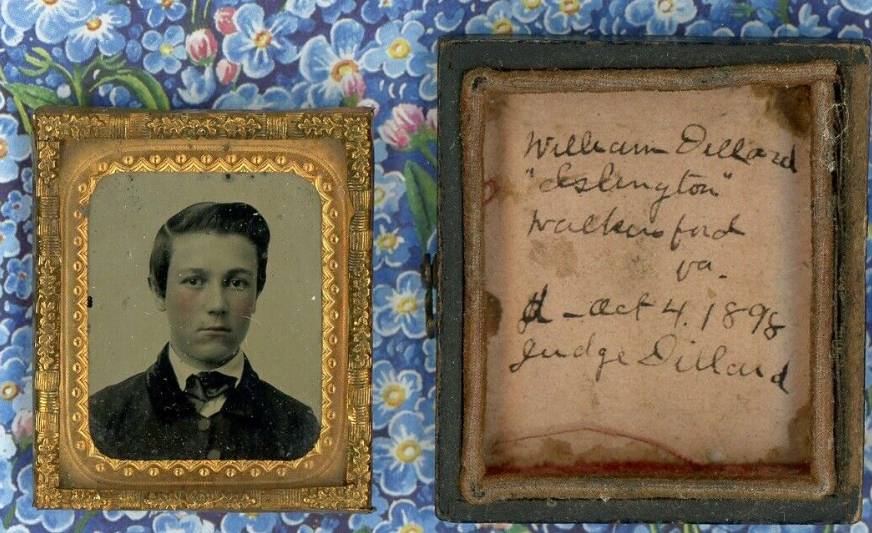 William Dillard
"Islington"
Walkersford
va.
d - Oct 4. 1898
Judge Dillard